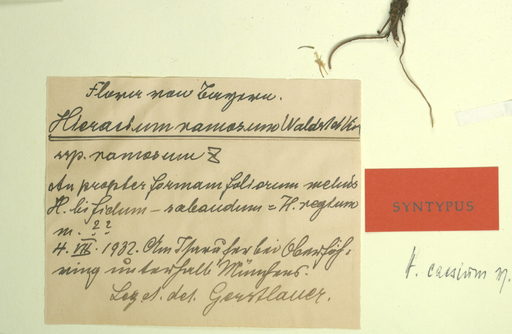 Flora von Bayern.
Hieracium ramosum Waldst. Kit.
ssp. ramosum Z
An propter formam foliorum melius
H. bifidum – sabaudum = H. regtum
m. ? ?
4. VII. 1932. Am Isarufer bei Oberföh-
ring unterhalb Münchens.
Leg. et. det. Gerstlauer.
SYNTYPUS
H. caesium